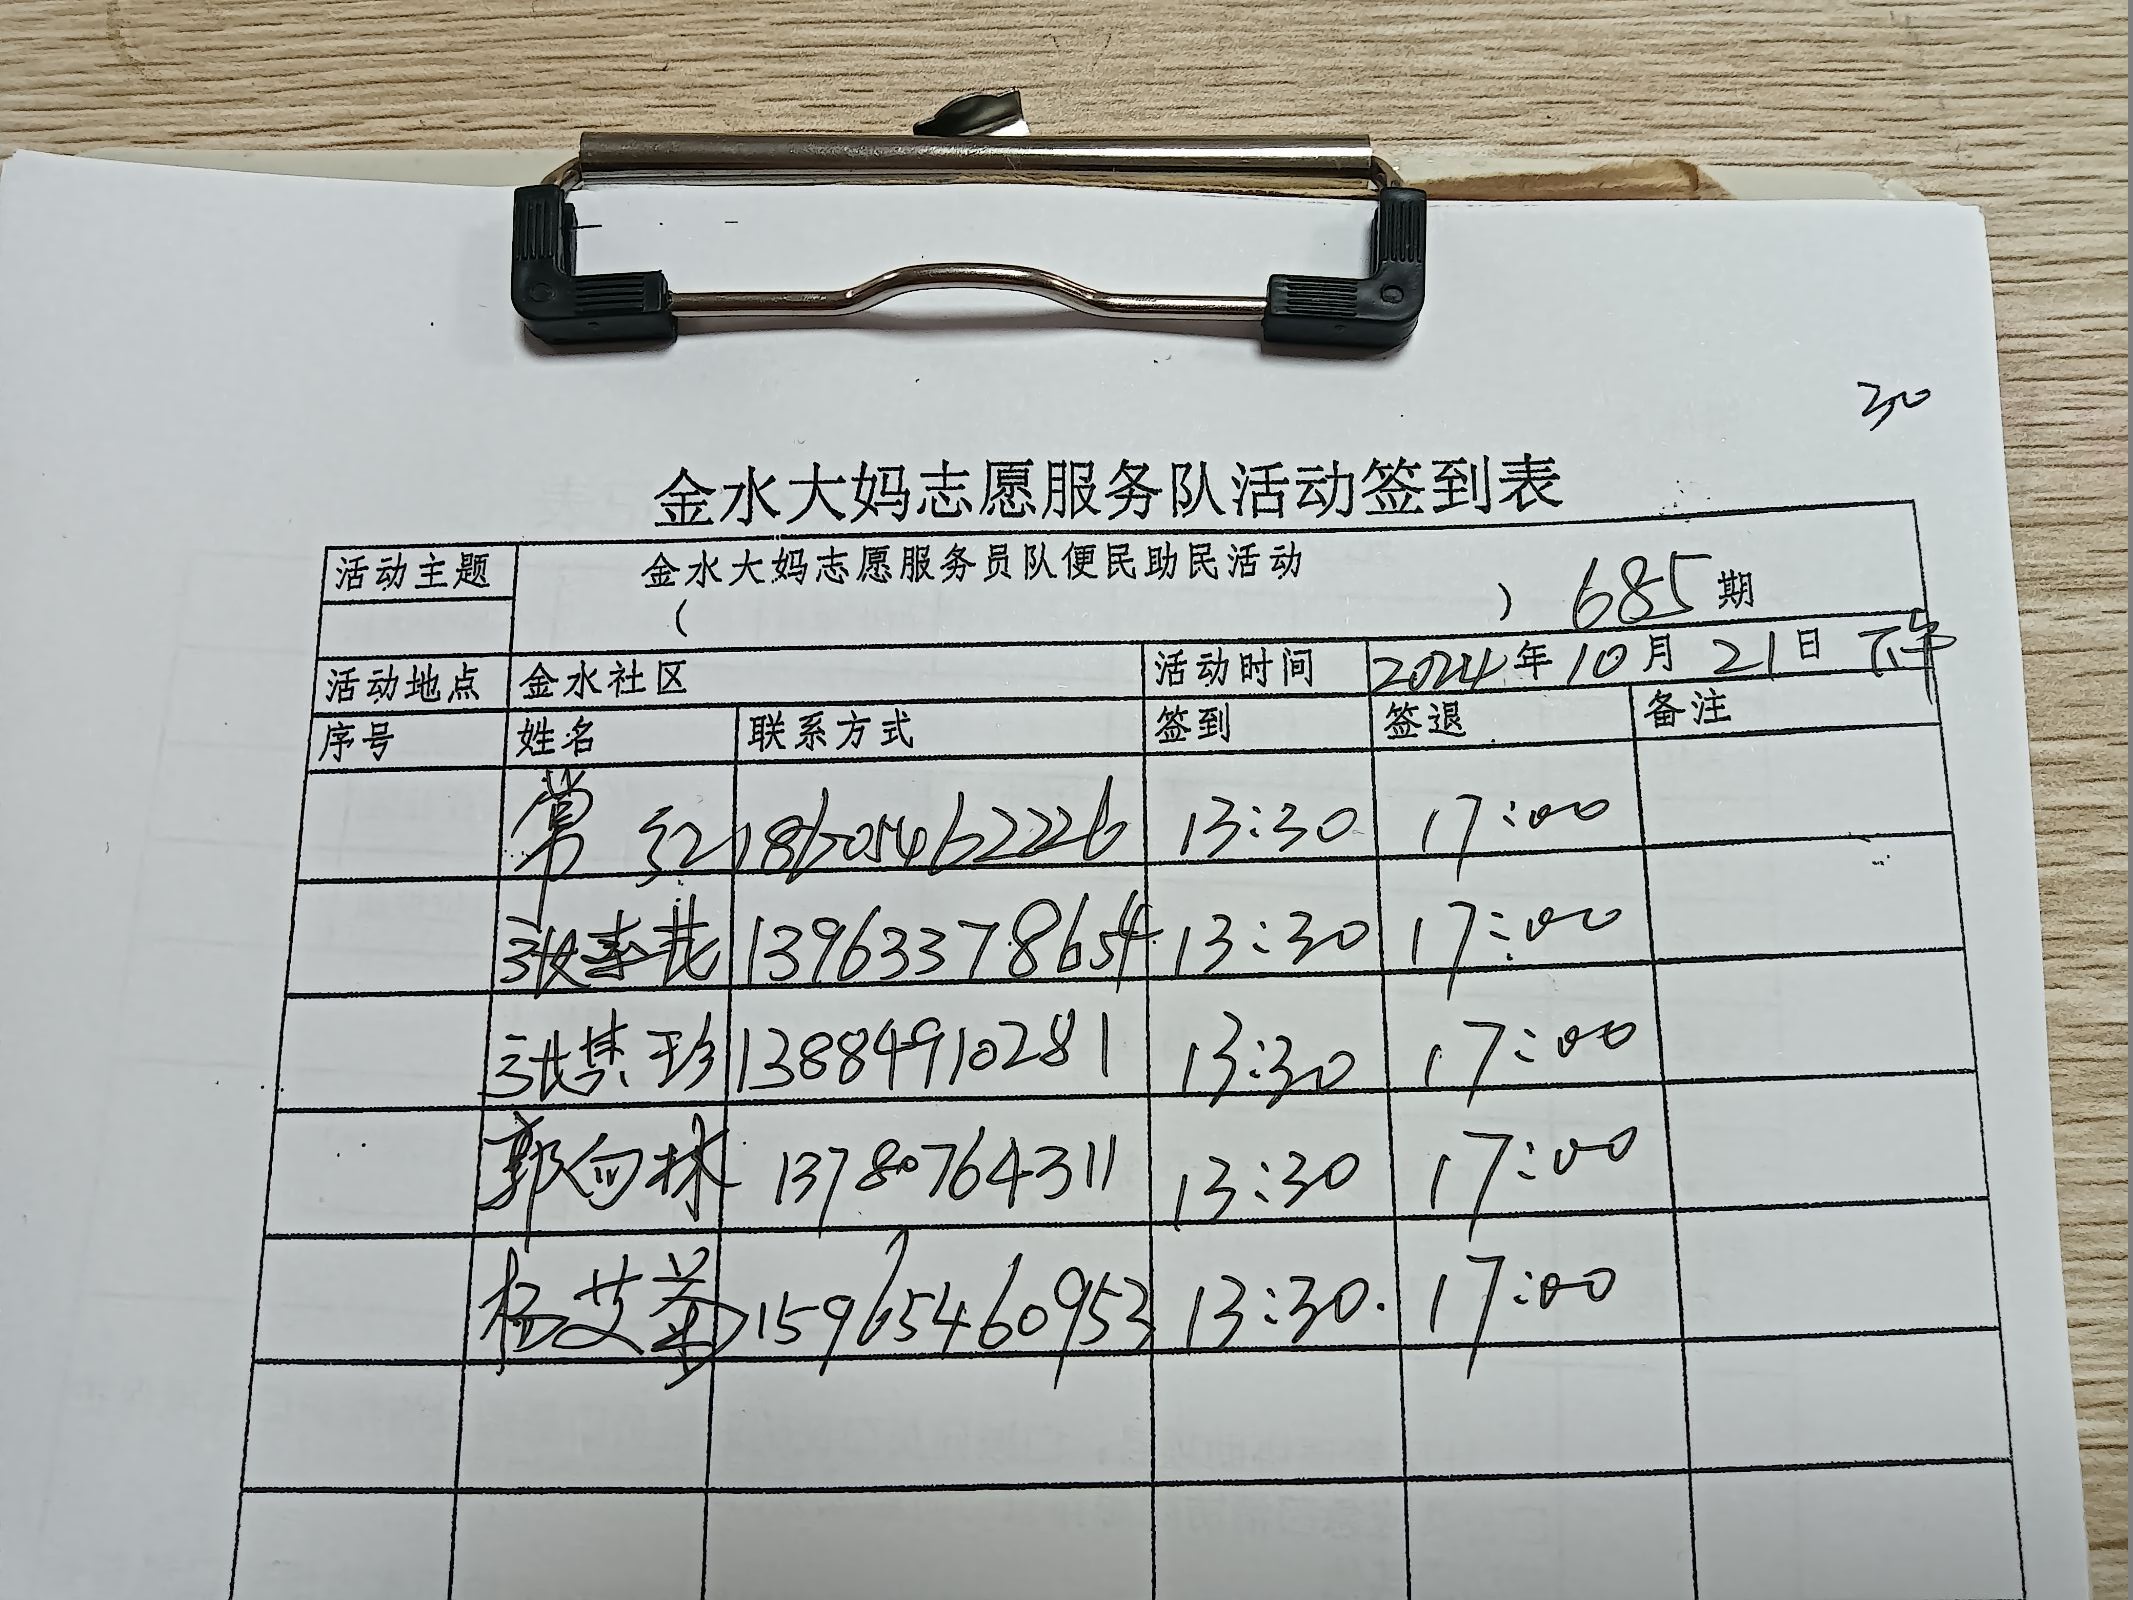 30
金水大妈志愿服务队活动签到表
活动主题 金水大妈志愿服务员队便民助民活动
( ) 685期
活动地点 金水社区 活动时间 2024年10月21日 下午
序号 姓名 联系方式 签到 签退 备注
常红 18605462226 13:30 17:00
张 13963378654 13:30 17:00
张 珍 13884910281 13:30 17:00
郭向林 13780764311 13:30 17:00
杨艾 15965460953 13:30. 17:00